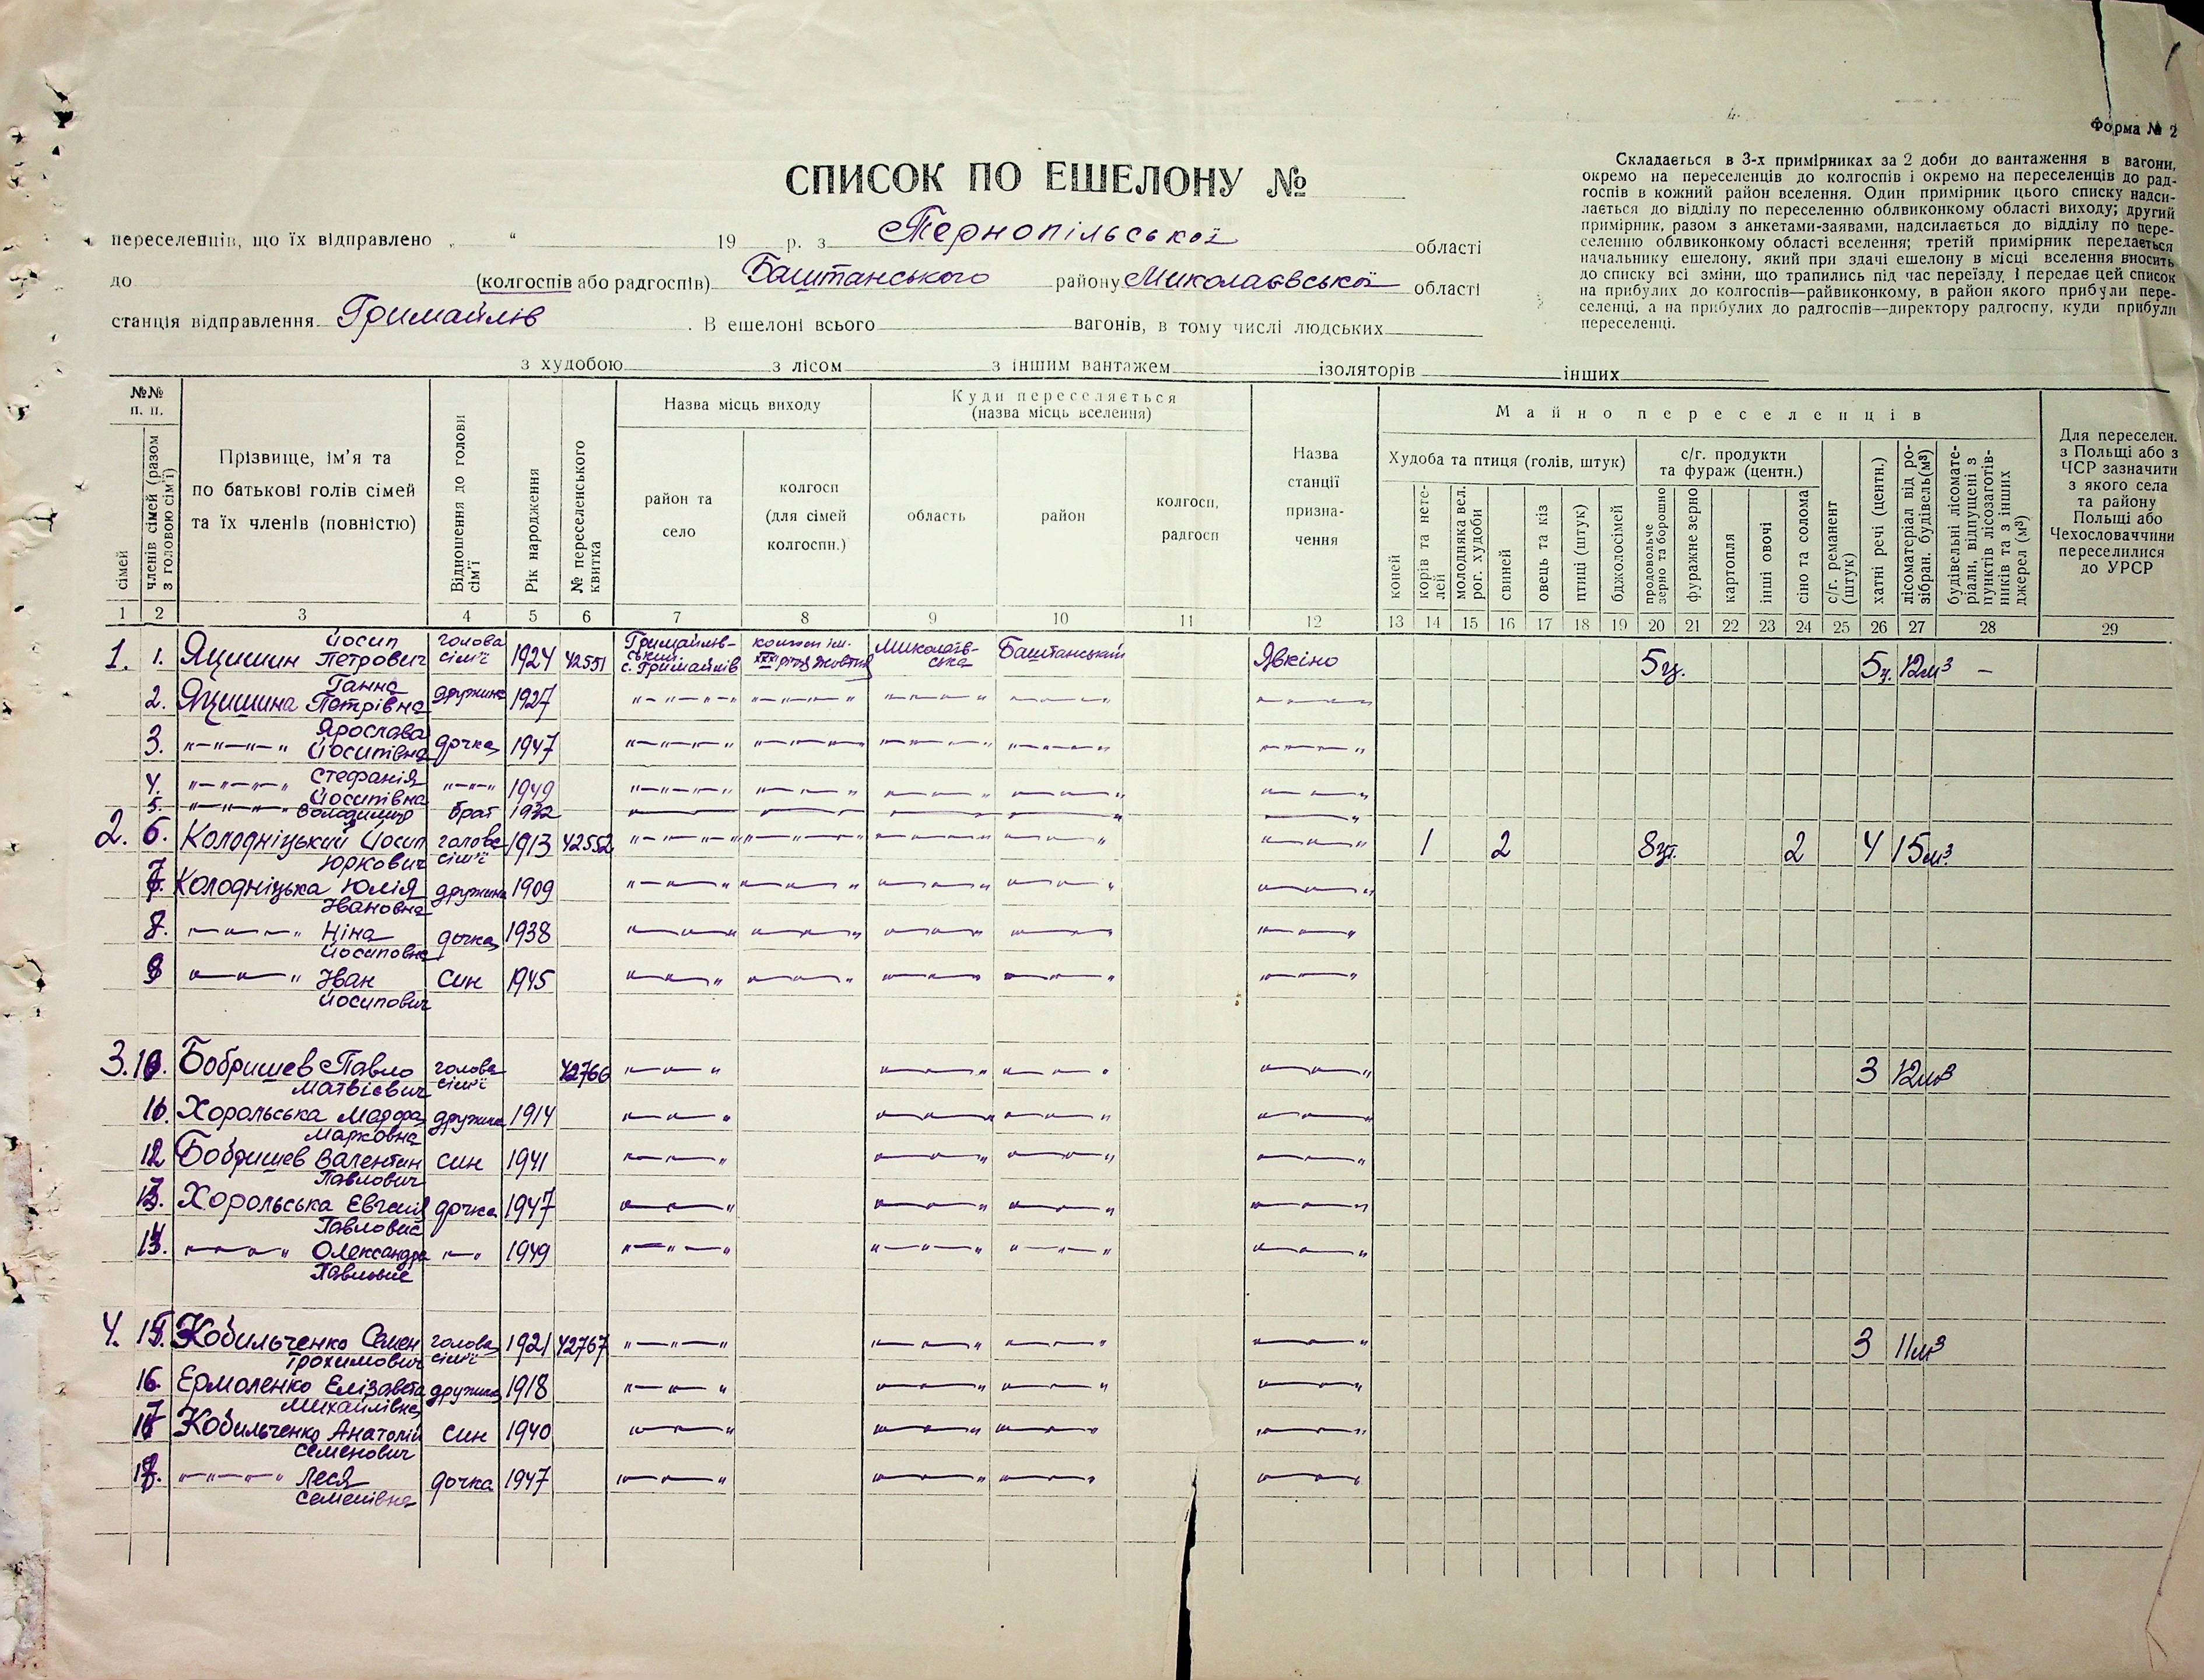 Форма № 2
СПИСОК ПО ЕШЕЛОНУ №
Складається в 3-х примірниках за 2 доби до вантаження в вагони,
окремо на переселенців до колгоспів і окремо на переселенців до рад-
госпів в кожний район вселення. Один примірник цього списку надси-
лається до відділу по переселенню облвиконкому області виходу; другий
примірник, разом з анкетами-заявами, надсилається до відділу по пере-
селенню облвиконкому області вселення; третій примірник передається
начальнику ешелону, який при здачі ешелону в місці вселення вносить
до списку всі зміни, що трапились під час переїзду, і передає цей список
на прибулих до колгоспів—райвиконкому, в район якого прибули пере-
селенці, а на прибулих до радгоспів—директору радгоспу, куди прибули
переселенці.
переселенців, що їх відправлено „ “ 19 р. з Тернопільської області
до (колгоспів або радгоспів) Баштанського району Миколаївської області
станція відправлення Гримайлів. В ешелоні всього вагонів, в тому числі людських
з худобою з лісом з іншим вантажем ізоляторів інших
№№ п. п.
сімей
членів сімей (разом з головою сім'ї)
Прізвище, ім'я та
по батькові голів сімей
та їх членів (повністю)
Відношення до голови сім'ї
Рік народження
№ переселенського квитка
Назва місць виходу
район та
село
колгосп
(для сімей
колгоспн.)
Куди переселяється
(назва місць вселення)
область
район
колгосп,
радгосп
Назва
станції
призна-
чення
Майно переселенців
Худоба та птиця (голів, штук)
коней
корів та нете-
лей
молодняка вел.
рог. худоби
свиней
овець та кіз
птиці (штук)
бджолосімей
с/г. продукти
та фураж (центн.)
продовольче
зерно та борошно
фуражне зерно
картопля
інші овочі
сіно та солома
с/г. реманент
(штук)
хатні речі (центн.)
лісоматеріал від ро-
зібран. будівель(м³)
будівельні лісомате-
ріали, відпущені з
пунктів лісозаготів-
ників та з інших
джерел (м³)
Для переселен.
з Польщі або з
ЧСР зазначити
з якого села
та району
Польщі або
Чехословаччини
переселилися
до УРСР
1 2 3 4 5 6 7 8 9 10 11 12 13 14 15 16 17 18 19 20 21 22 23 24 25 26 27 28 29
1. 1. Яцишин Йосип Петрович голова сім'ї 1924 42551 Гримайлів-ський с. Гримайлів Миколаїв-ська Баштанський Явкіно 5ц. 5ц. 12м³ —
2. Яцишина Ганна Петрівна дружина 1927
3. Ярослава Йосипівна дочка 1947
4. Стефанія Йосипівна 1949
5. Володимир брат 1932
2. 6. Колодніцький Йосип Юркович голова сім'ї 1913 42552 1 2 8ц. 2 4 15м³
7. Колодніцька Юлія Івановна дружина 1909
8. Ніна Йосиповна дочка 1938
9 Іван Йосипович син 1945
3. 10. Бобришев Павло Матвієвич голова сім'ї 42766 3 12м³
11. Хорольська Марфа Марковна дружина 1914
12 Бобришев Валентин Павлович син 1941
13. Хорольська Євгенія дочка 1947
14. Олександра 1949
4. 15. Кобильченко Семен Трохимович голова сім'ї 1921 42767 3 11м³
16. Ермоленко Елізавета Михайлівна дружина 1918
17 Кобильченко Анатолій Семенович син 1940
18. Леся Семенівна дочка 1947